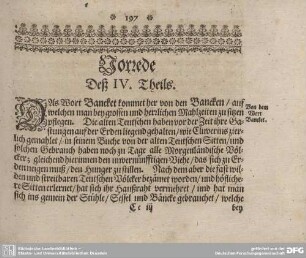 * 197 *
Vorrede
Deß IV. Theils.
DAs Wort Bancket kommet her von den Bancken / auf
welchen man bey grossen und herrlichen Mahlzeiten zu sitzen
pflegen. Die alten Teutschen haben vor der Zeit ihre Ga-
stungen auf der Erden liegend gehalten / wie Cluverius zier-
lich gemahlet / in seinem Buche von der alten Teutschen Sitten / und
solchen Gebrauch haben noch zu Tage alle Morgenländische Völ-
cker / gleich hierinnen den unvernünfftigen Viehe / das sich zu Er-
den neigen muß / den Hunger zu stillen. Nach dem aber die
und streitbaren Teutschen Völcker bezämet worden / und höfliche-
re Sitten erlernet / hat sich ihr Haußraht vermehret / und hat man
sich ins gemein der Stühle / Sessel und Bäncke gebrauchet / welche
Cc iij
bey
Von dem
Wort
Bancket.